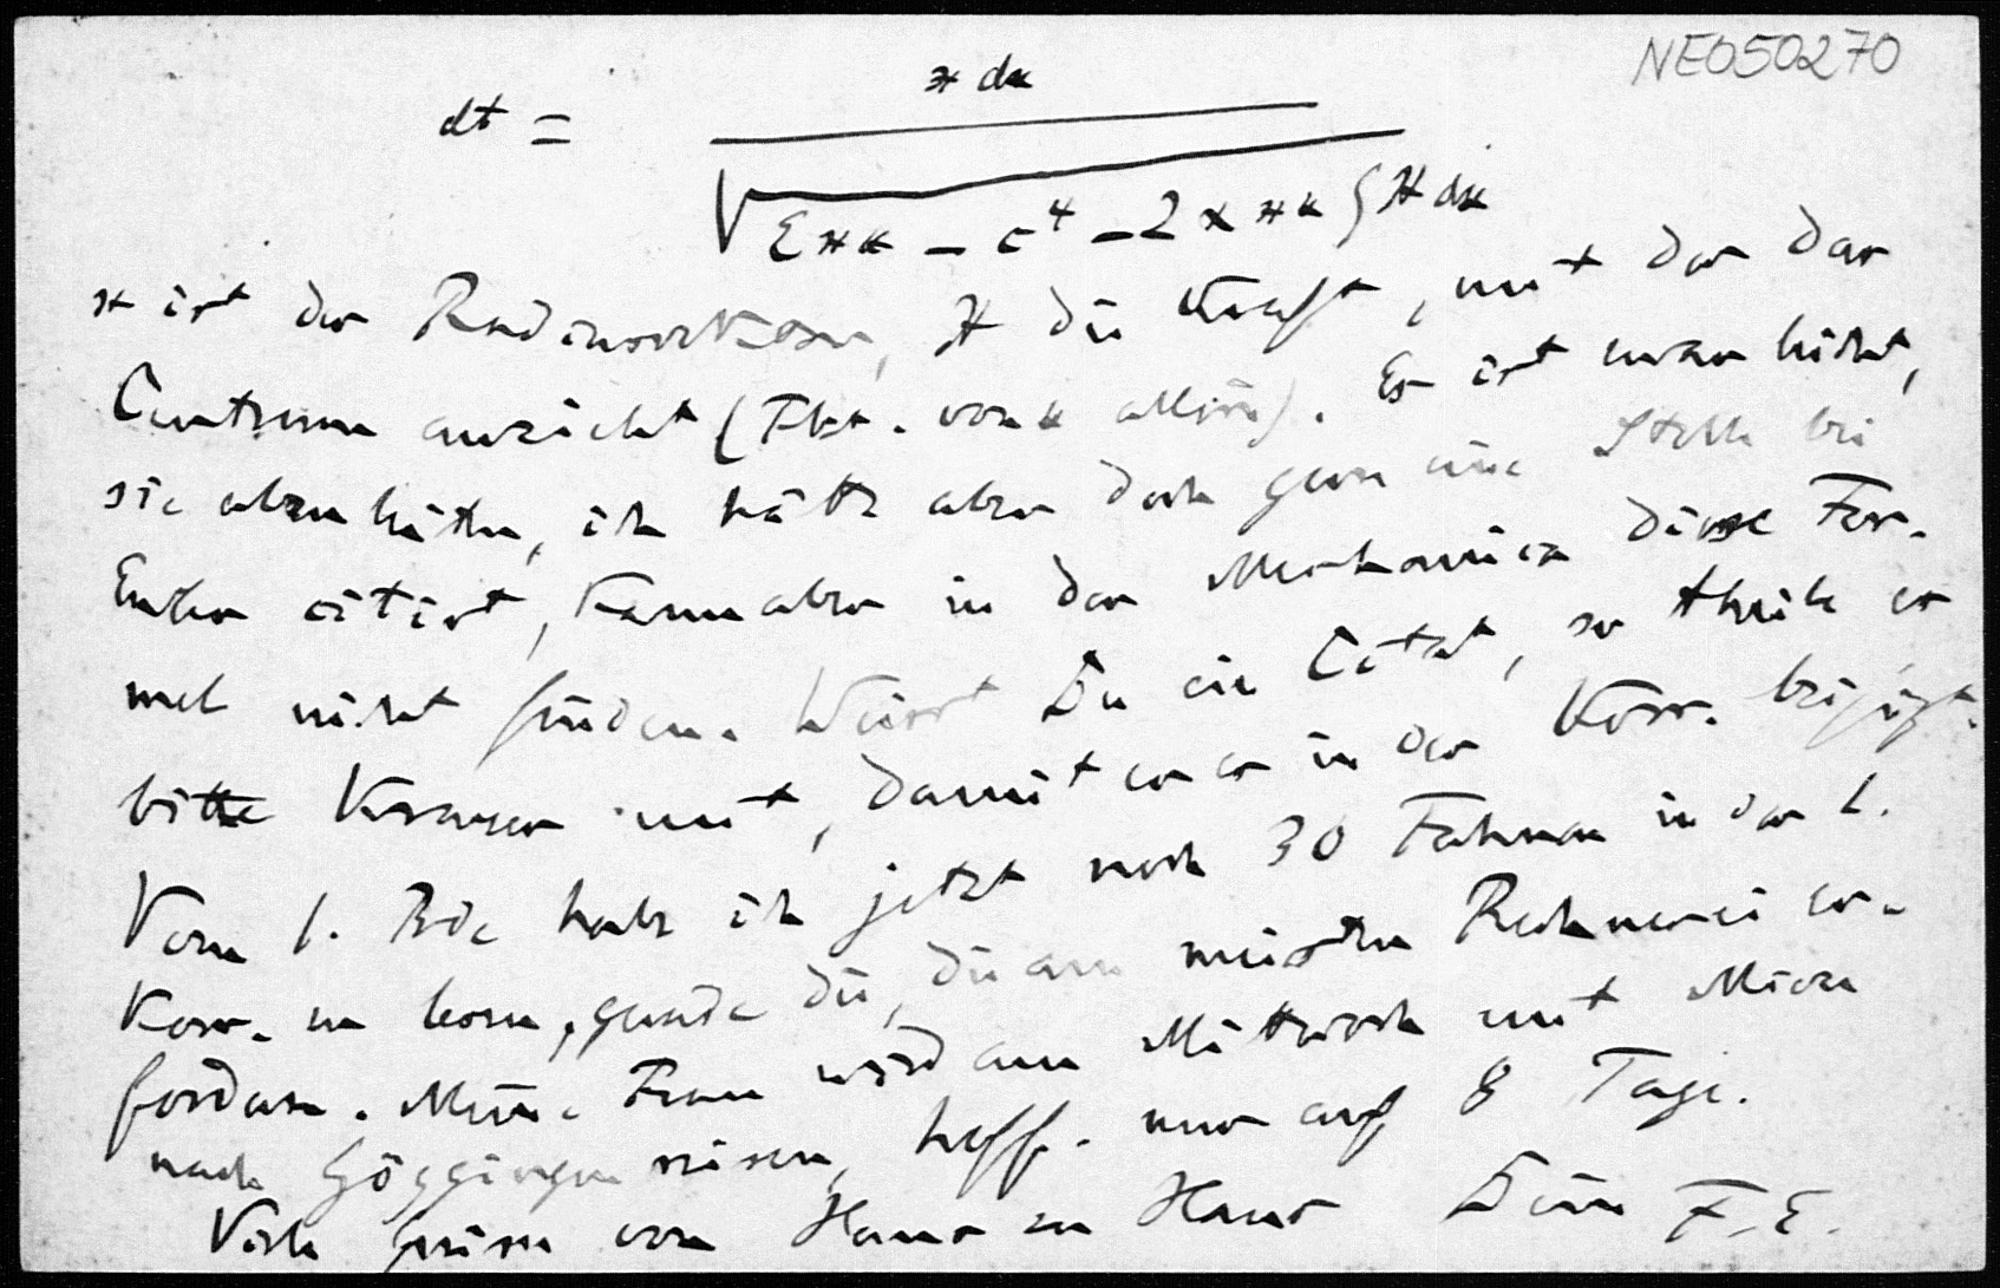 NE050270
dt = x dx
√ Exx − c⁴ − 2xxx ∫ X dx
x ist der Radiusvektor, X die Kraft, mit der das
Centrum anzieht (Fkt. von x allein). Es ist zwar leicht,
sie abzuleiten, ich hätte aber doch gern eine Stelle bei
Euler citirt, kann aber in der Mechanica diese For-
mel nicht finden. Weisst Du ein Citat, so theile es
bitte Krazer mit, damit er es in der Korr. beifügt.
Vom 1. Bde habe ich jetzt noch 30 Fahnen in der 1.
Korr. zu lesen, gerade die, die am meisten Rechnerei er-
fordern. Meine Frau wird am Mittwoch mit
nach Göggingen reisen, hoff. nur auf 8 Tage.
Viele Grüsse von Haus zu Haus Dein F. E.